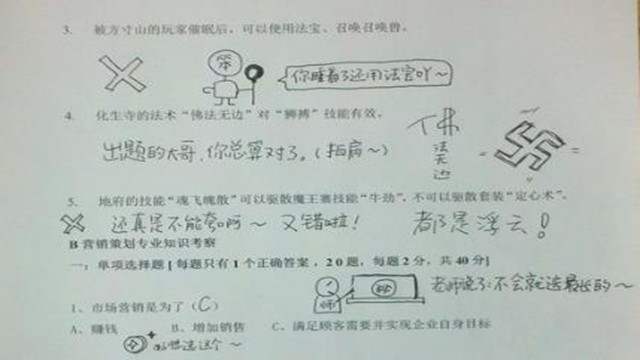 3. 被方寸山的玩家催眠后,可以使用法宝、召唤召唤兽。
笨
你睡着了还用法宝吖~
4. 化生寺的法术“佛法无边”对“狮搏”技能有效。
出题的大哥,你总算对了。(拍肩~)
佛法无边
5. 地府的技能“魂飞魄散”可以驱散魔王寨技能“牛劲”,不可以驱散套装“定心术”。
还真是不能夸啊~ 又错啦! 都是浮云!
B 营销策划专业知识考察
一:单项选择题[每题只有1个正确答案,20题,每题2分,共40分]
师
老师说了:不会就选最长的~
1、市场营销是为了(C)
A、赚钱 B、增加销售 C、满足顾客需要并实现企业自身目标
选这个~